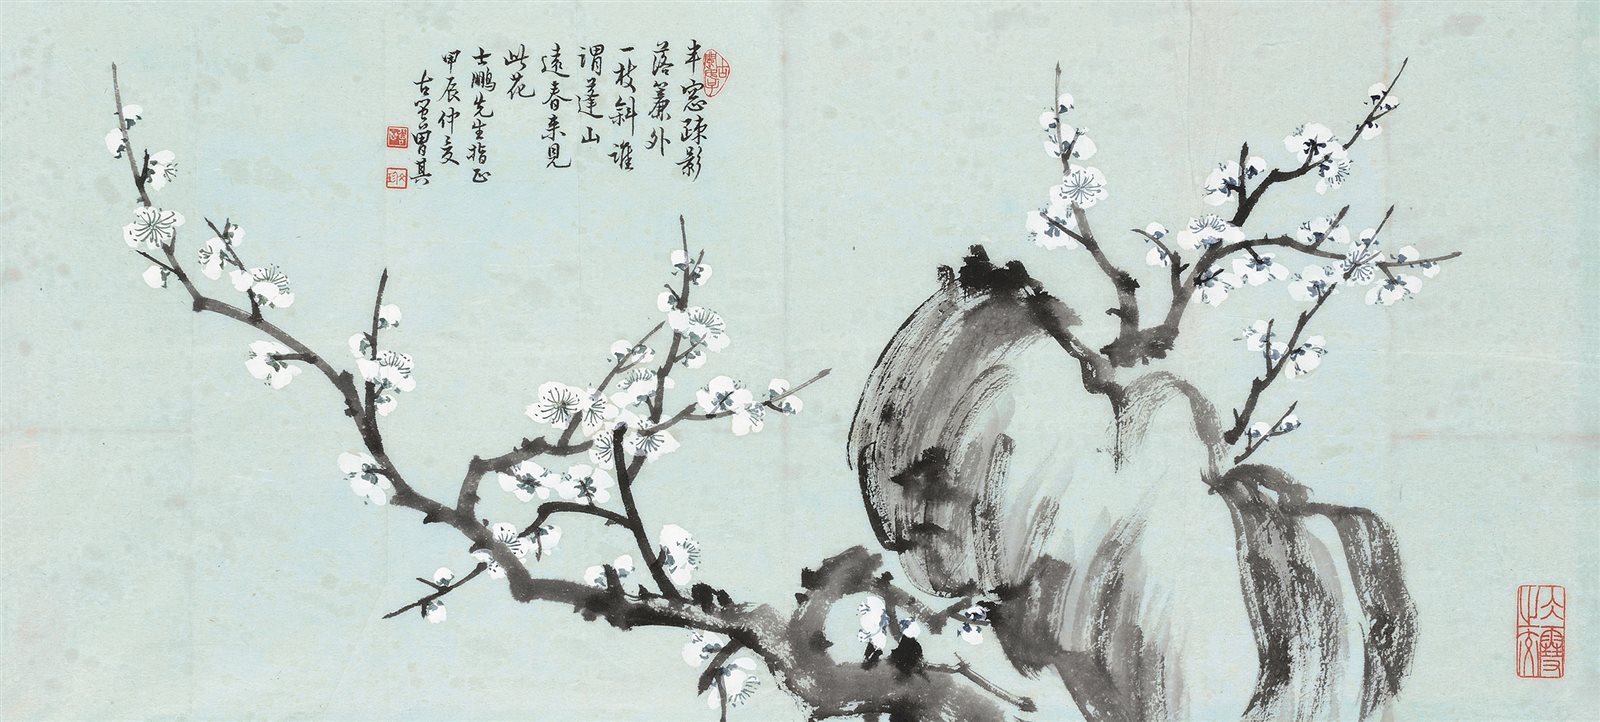 半窓疎影
落簾外
一枝斜誰
謂蓬山
遠春来見
此花
士鵬先生指正
甲辰仲夏
古瑩曽其